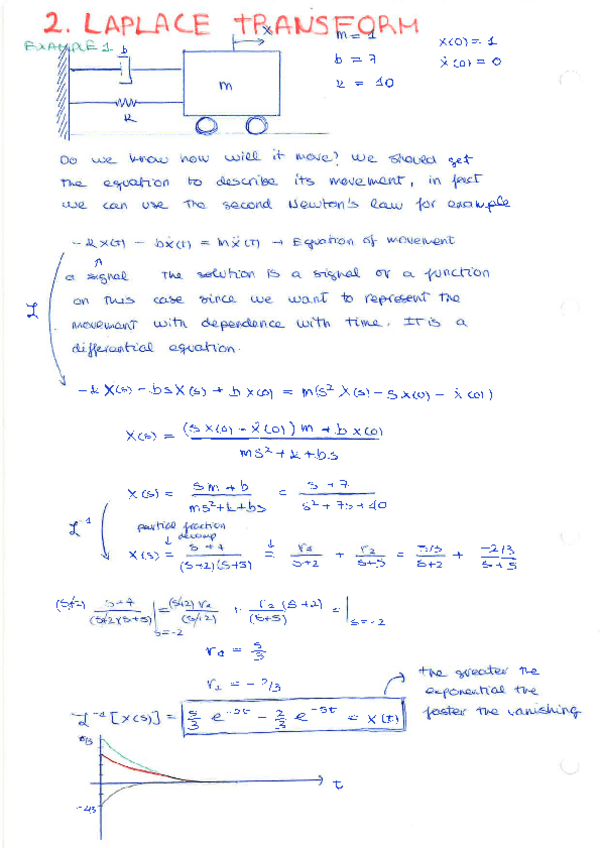 2. LAPLACE TRANSFORM
EXAMPLE 1
b
x
m = 1
x(0) = 1
b = 7
ẋ(0) = 0
m
k = 10
k
Do we know how will it move? We should get
the equation to describe its movement, in fact
we can use the second Newton's law for example
-k x(t) - bẋ(t) = mẍ(t) → Equation of movement
a signal The solution is a signal or a function
on this case since we want to represent the
movement with dependence with time. It is a
differential equation.
ℒ
-k X(s) - bs X(s) + b x(0) = m(s² X(s) - s x(0) - ẋ(0))
X(s) = ((s x(0) - ẋ(0)) m + b x(0)) / (ms² + k + bs)
X(s) = (sm + b) / (ms² + k + bs) = (s + 7) / (s² + 7s + 10)
ℒ⁻¹
partial fraction
↓ decomp ↓
X(s) = (s + 7) / ((s+2)(s+5)) = r₁ / (s+2) + r₂ / (s+5) = 5/3 / (s+2) + -2/3 / (s+5)
(s+2) (s+7) / ((s+2)(s+5)) |s=-2 = (s+2) r₁ / (s+2) + r₂ (s+2) / (s+5) = |s=-2
r₁ = 5/3
r₂ = -2/3
the greater the
exponential the
faster the vanishing
ℒ⁻¹ [X(s)] = 5/3 e^-2t - 2/3 e^-5t = x(t)
5/3
t